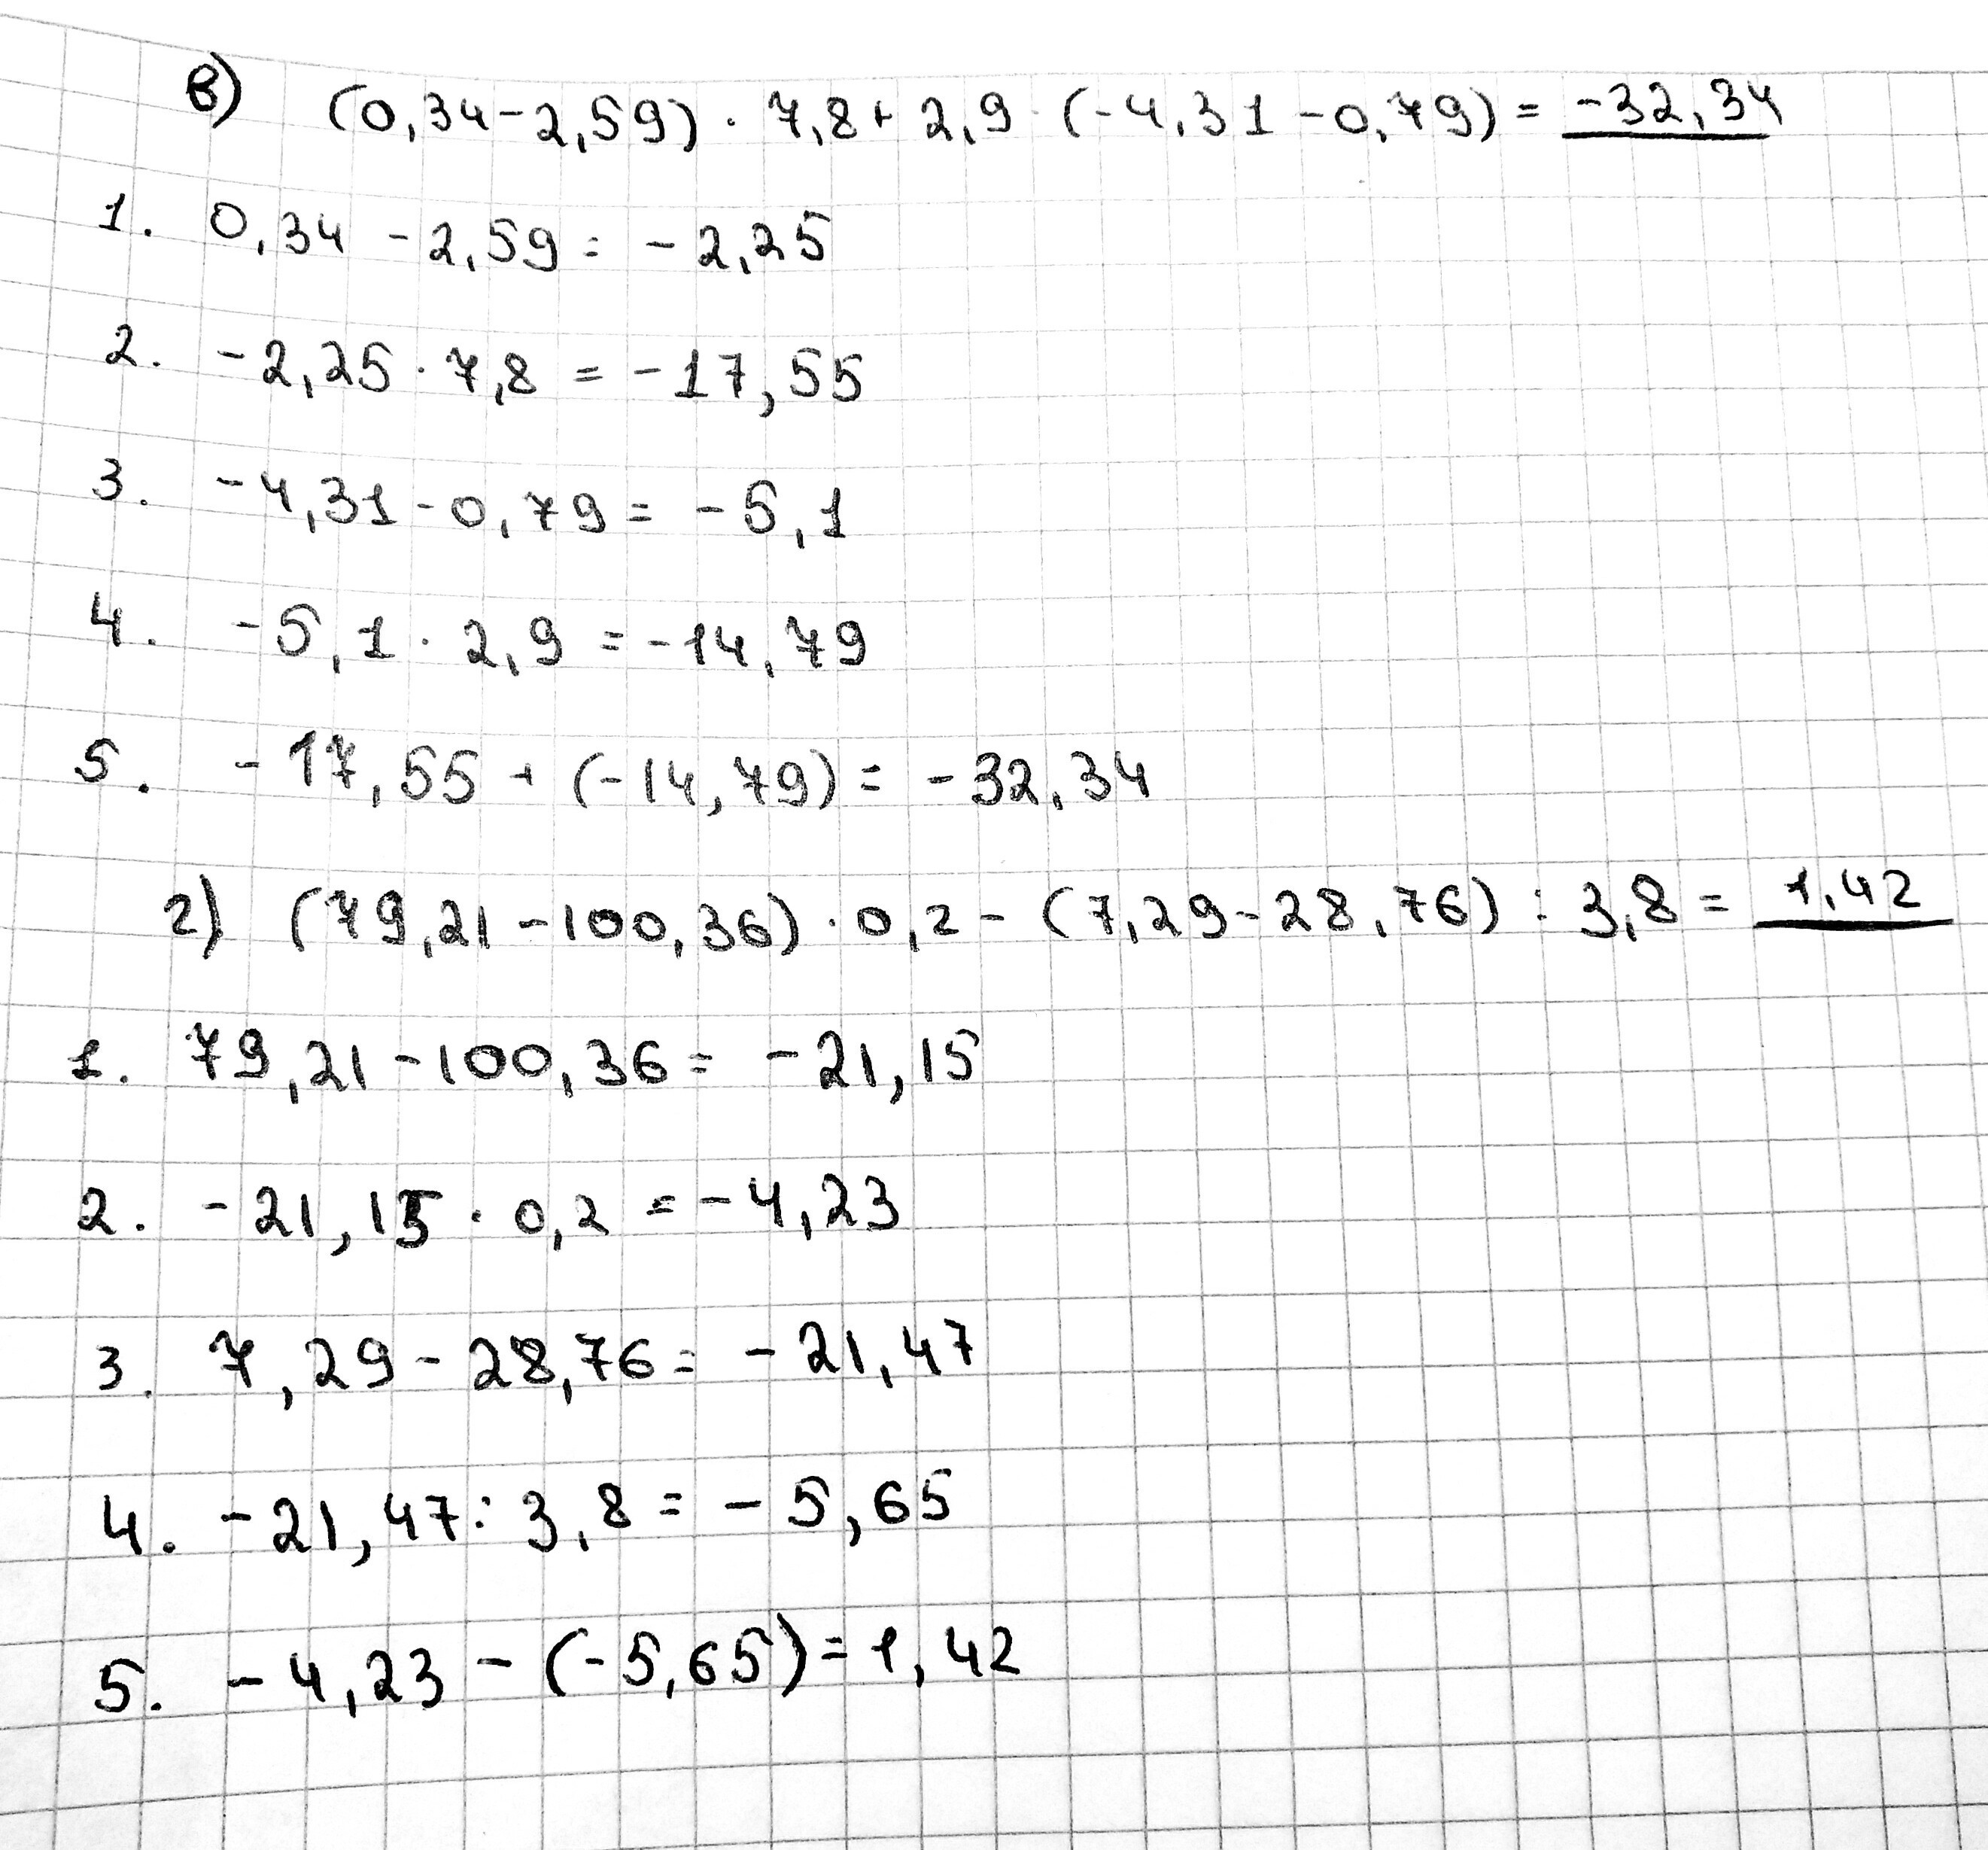 в) (0,34-2,59) · 7,8 + 2,9 · (-4,31-0,79) = -32,34
1. 0,34 - 2,59 = -2,25
2. -2,25 · 7,8 = -17,55
3. -4,31 - 0,79 = -5,1
4. -5,1 · 2,9 = -14,79
5. -17,55 + (-14,79) = -32,34
г) (79,21-100,36) · 0,2 - (7,29-28,76) : 3,8 = 1,42
1. 79,21-100,36 = -21,15
2. -21,15 · 0,2 = -4,23
3. 7,29 - 28,76 = -21,47
4. -21,47 : 3,8 = -5,65
5. -4,23 - (-5,65) = 1,42